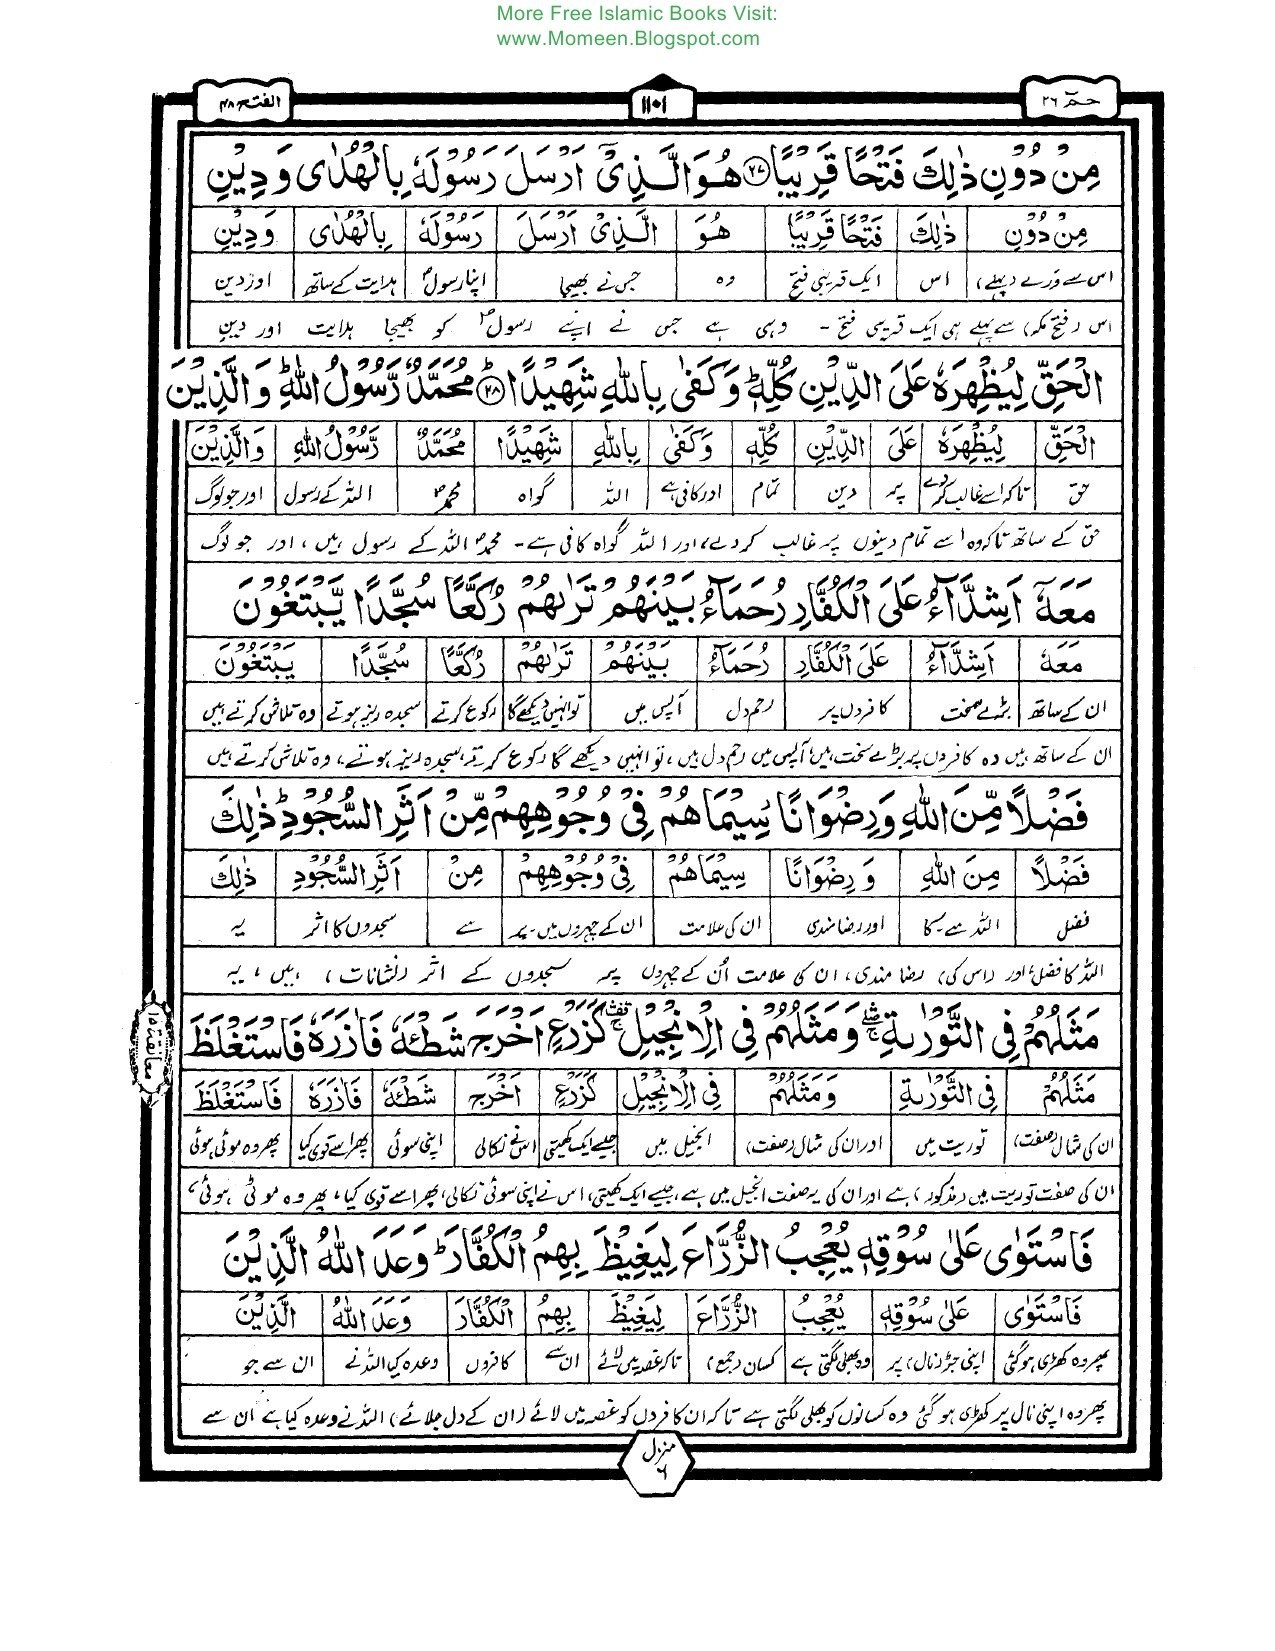 More Free Islamic Books Visit:
www.Momeen.Blogspot.com
حٰمٓ ۲۶
۱۱۰۱
الفتح ۴۸
مِنْ دُوْنِ ذٰلِكَ فَتْحًا قَرِيْبًا ۲۷ هُوَ الَّذِیْۤ اَرْسَلَ رَسُوْلَهٗ بِالْهُدٰی وَدِيْنِ
مِنْ دُوْنِ ذٰلِكَ فَتْحًا قَرِيْبًا هُوَ الَّذِیْۤ اَرْسَلَ رَسُوْلَهٗ بِالْهُدٰی وَدِيْنِ
اس سے ورے (پہلے) اس ایک قریبی فتح وہ جس نے بھیجا اپنا رسولؐ ہدایت کے ساتھ اور دین
اس (فتح مکہ) سے پہلے ہی ایک قریبی فتح - وہی ہے جس نے اپنے رسولؐ کو بھیجا ہدایت اور دین
الْحَقِّ لِيُظْهِرَهٗ عَلَی الدِّيْنِ كُلِّهٖ ؕ وَكَفٰی بِاللّٰهِ شَهِيْدًا ؕ ۲۸ مُحَمَّدٌ رَّسُوْلُ اللّٰهِ ؕ وَالَّذِيْنَ
الْحَقِّ لِيُظْهِرَهٗ عَلَی الدِّيْنِ كُلِّهٖ وَكَفٰی بِاللّٰهِ شَهِيْدًا مُحَمَّدٌ رَّسُوْلُ اللّٰهِ وَالَّذِيْنَ
حق تاکہ اسے غالب کردے پر دین تمام اور کافی ہے اللہ گواہ محمدؐ اللہ کے رسول اور جو لوگ
حق کے ساتھ تاکہ وہ اسے تمام دینوں پر غالب کر دے، اور اللہ گواہ کافی ہے - محمدؐ اللہ کے رسول ہیں، اور جو لوگ
مَعَهٗۤ اَشِدَّآءُ عَلَی الْكُفَّارِ رُحَمَآءُ بَيْنَهُمْ تَرٰىهُمْ رُكَّعًا سُجَّدًا يَّبْتَغُوْنَ
مَعَهٗ اَشِدَّآءُ عَلَی الْكُفَّارِ رُحَمَآءُ بَيْنَهُمْ تَرٰىهُمْ رُكَّعًا سُجَّدًا يَبْتَغُوْنَ
ان کے ساتھ بڑے سخت کافروں پر رحم دل آپس میں تو انہیں دیکھے گا رکوع کرتے سجدہ ریز ہوتے وہ تلاش کرتے ہیں
ان کے ساتھ ہیں وہ کافروں پر بڑے سخت ہیں، آپس میں رحم دل ہیں، تو انہیں دیکھے گا رکوع کرتے، سجدہ ریز ہوتے، وہ تلاش کرتے ہیں
فَضْلًا مِّنَ اللّٰهِ وَرِضْوَانًا سِيْمَاهُمْ فِیْ وُجُوْهِهِمْ مِّنْ اَثَرِ السُّجُوْدِ ؕ ذٰلِكَ
فَضْلًا مِنَ اللّٰهِ وَرِضْوَانًا سِيْمَاهُمْ فِیْ وُجُوْهِهِمْ مِنْ اَثَرِ السُّجُوْدِ ذٰلِكَ
فضل اللہ سے - کا اور رضامندی ان کی علامت ان کے چہروں میں - پر سے سجدوں کا اثر یہ
اللہ کا فضل اور (اس کی) رضا مندی، ان کی علامت اُن کے چہروں پر سجدوں کے اثر (نشانات) ہیں، یہ
مَثَلُهُمْ فِی التَّوْرٰىةِ ۛ وَمَثَلُهُمْ فِی الْاِنْجِيْلِ ۛ كَزَرْعٍ اَخْرَجَ شَطْـَٔهٗ فَاٰزَرَهٗ فَاسْتَغْلَظَ
معانقۃ ۱۵
مَثَلُهُمْ فِی التَّوْرٰىةِ وَمَثَلُهُمْ فِی الْاِنْجِيْلِ كَزَرْعٍ اَخْرَجَ شَطْـَٔهٗ فَاٰزَرَهٗ فَاسْتَغْلَظَ
ان کی مثال (صفت) توریت میں اور ان کی مثال (صفت) انجیل میں جیسے ایک کھیتی اس نے نکالی اپنی سوئی پھر اسے قوی کیا پھر وہ موٹی ہوئی
ان کی صفت توریت میں (مذکور) ہے اور ان کی یہ صفت انجیل میں ہے، جیسے ایک کھیتی، اس نے اپنی سوئی نکالی، پھر اسے قوی کیا، پھر وہ موٹی ہوئی،
فَاسْتَوٰی عَلٰی سُوْقِهٖ يُعْجِبُ الزُّرَّاعَ لِيَغِيْظَ بِهِمُ الْكُفَّارَ ؕ وَعَدَ اللّٰهُ الَّذِيْنَ
فَاسْتَوٰی عَلٰی سُوْقِهٖ يُعْجِبُ الزُّرَّاعَ لِيَغِيْظَ بِهِمُ الْكُفَّارَ وَعَدَ اللّٰهُ الَّذِيْنَ
پھر وہ کھڑی ہوگئی اپنی جڑ (نال) پر وہ بھلی لگتی ہے کسان (جمع) تاکہ غصہ میں لائے ان سے کافروں وعدہ کیا اللہ نے ان سے جو
پھر وہ اپنی نال پر کھڑی ہو گئی وہ کسانوں کو بھلی لگتی ہے تاکہ ان کافروں کو غصہ میں لائے (ان کے دل جلائے) اللہ نے وعدہ کیا ہے ان سے
منزل ۶